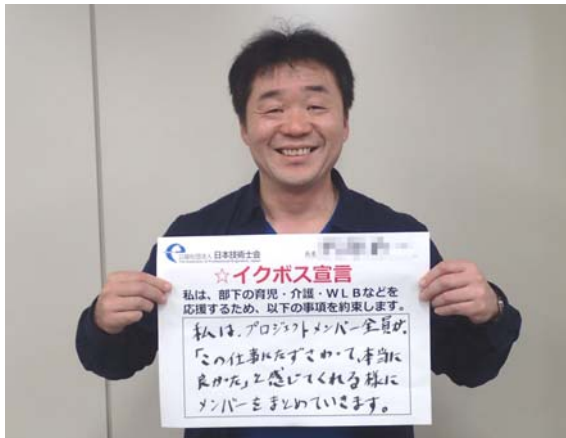 公益社団法人 日本技術士会
氏名
☆イクボス宣言
私は、部下の育児・介護・WLBなどを
応援するため、以下の事項を約束します。
私は、プロジェクトメンバー全員が、
「この仕事にたずさわって、本当に
良かった」と感じてくれる様に
メンバーをまとめていきます。